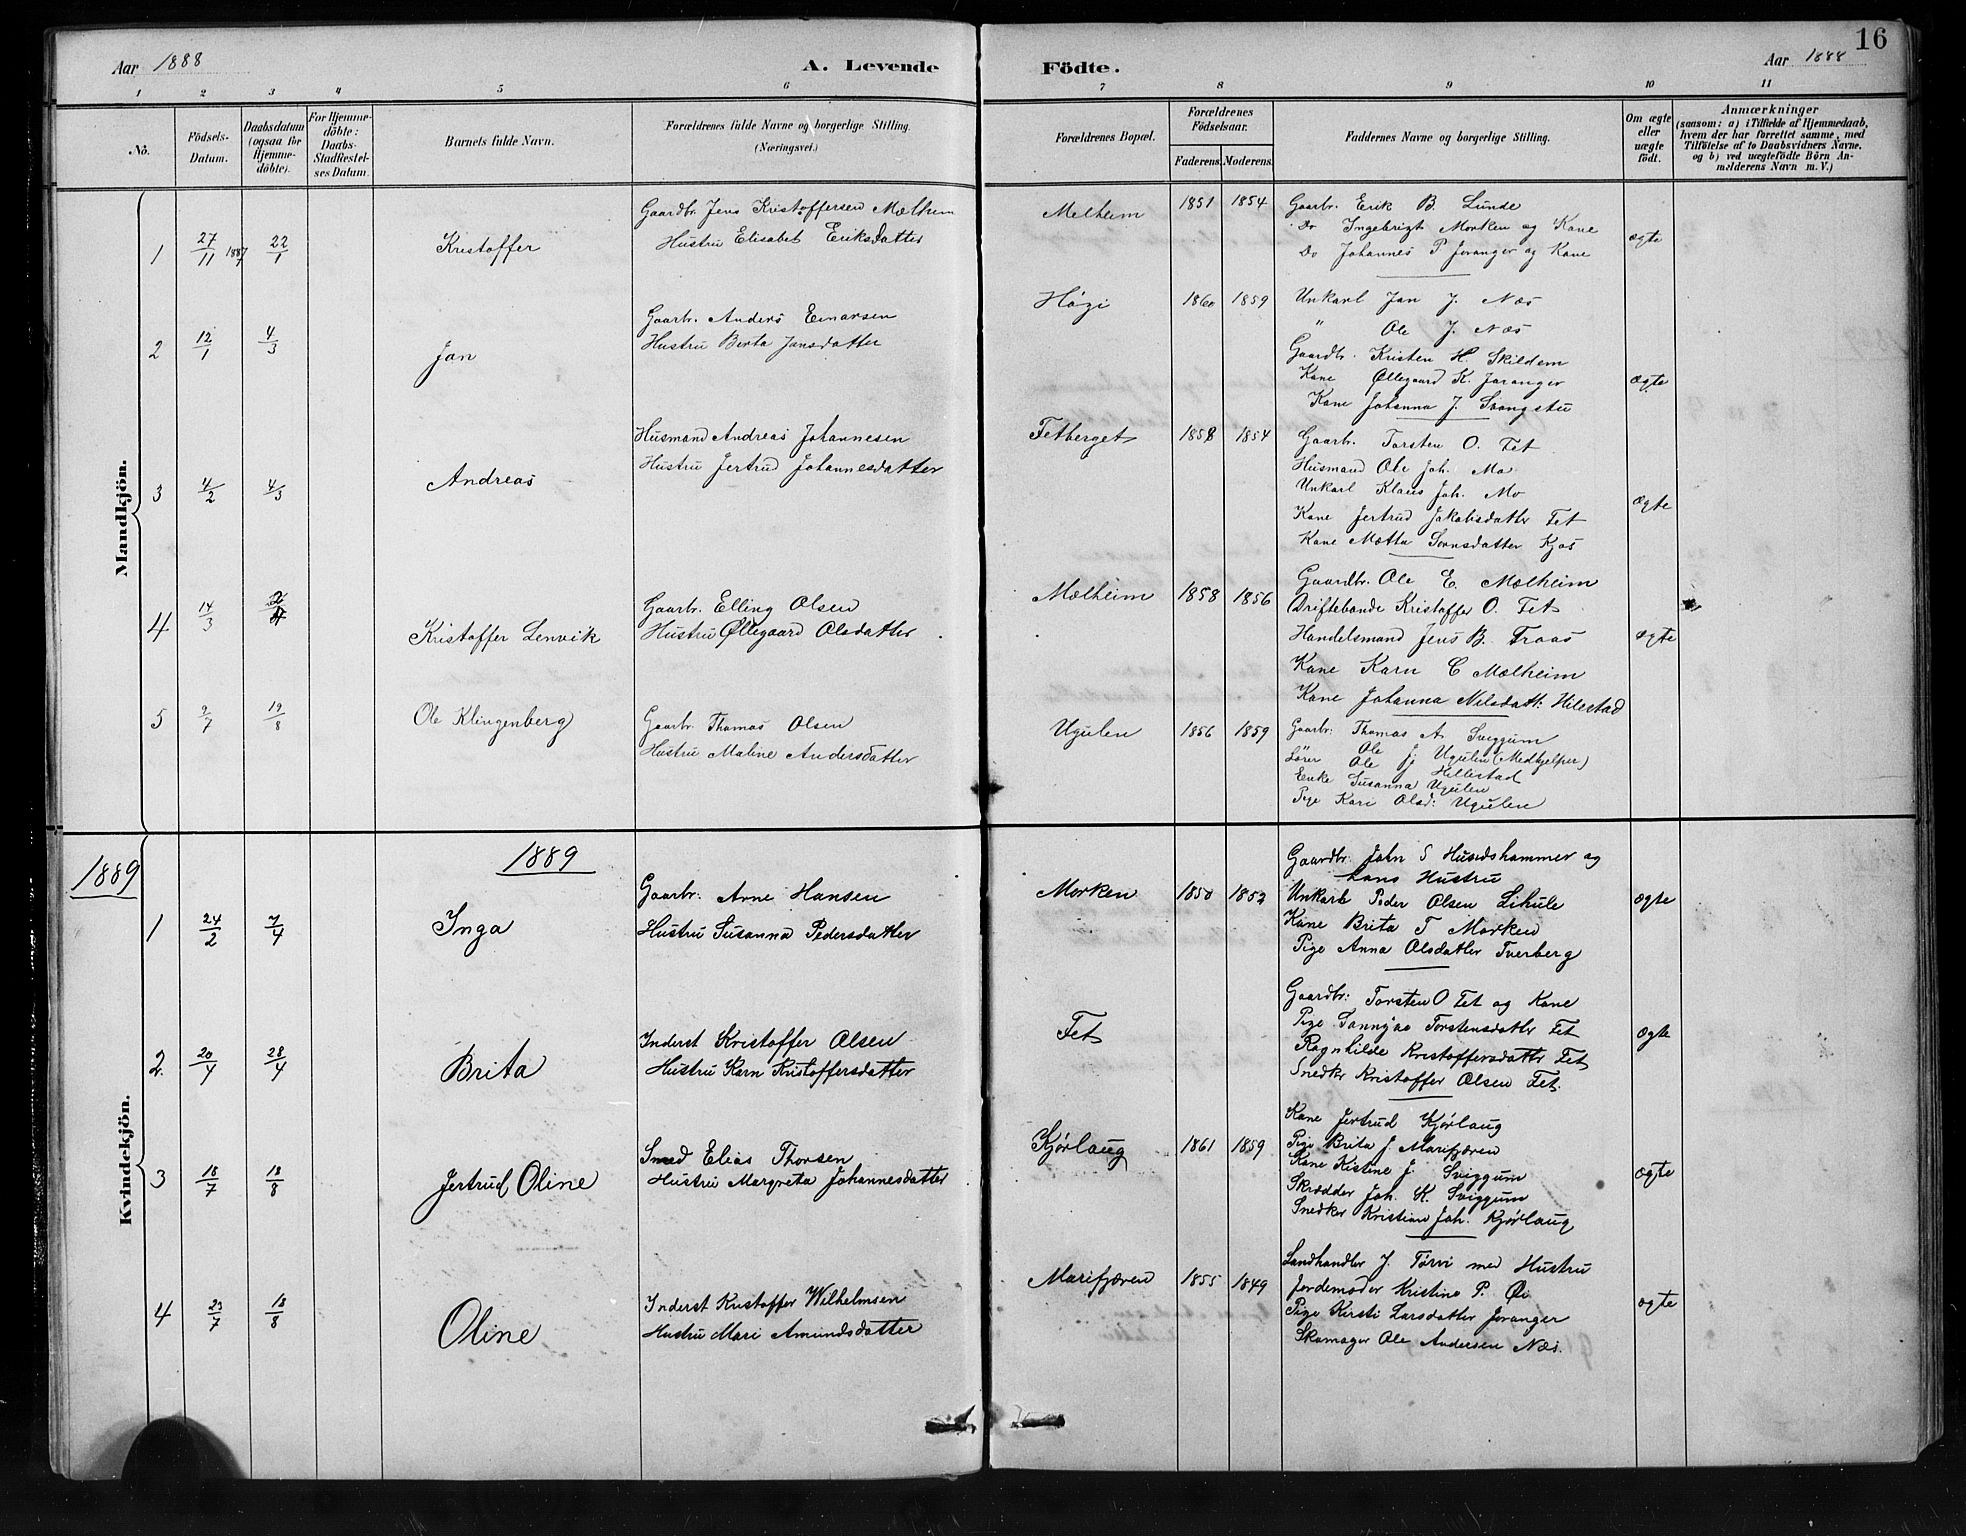 16
Aar 1888
A. Levende Födte.
Aar 1888
1 2 3 4 5 6 7 8 9 10 11
No.
Födsels-Datum.
Daabsdatum (ogsaa for Hjemmedöbte).
For Hjemmedöbte: Daabs-Stadfæstelses Datum.
Barnets fulde Navn.
Forældrenes fulde Navne og borgerlige Stilling.
(Næringsvei.)
Forældrenes Bopæl.
Forældrenes Födselsaar.
Faderens. Moderens.
Faddernes Navne og borgerlige Stilling.
Om ægte eller uægte födt.
Anmærkninger
(saasom: a) i Tilfælde af Hjemmedaab, hvem der har forrettet samme, med Tilföielse af to Daabsvidners Navne, og b) ved uægtefödte Börn Anmelderens Navn m. V.)
Mandkjön.
1 27/11 1887 22/1 Kristoffer
Gaardbr. Jens Kristoffersen Mælheim
Hustru Elisabet Eriksdatter
Melheim 1851 1854
Gaarbr. Erik B. Lunde
Do Ingebrigt Morken og Kane
Do Johannes P Joranger og Kane
ægte
2 12/1 4/3 Jan
Gaarbr. Anders Einarsen
Hustru Berta Jansdatter
Høgi 1860 1859
Unkarl Jan J. Næs
" Ole J. Næs
Gaardbr. Kristen H. Skildem
Kane Øllegaard K. Joranger
Kane Johanna J.
ægte
3 4/2 4/3 Andreas
Husmand Andreas Johannesen
Hustru Jertrud Johannesdatter
Fetberget 1858 1854
Gaarbr. Torsten O. Fet
Husmand Ole Joh. Mo
Unkarl Klaus Joh. Mo
Kane Jertrud Jakobsdatter Fet
Kane Mætta
ægte
4 14/3 2/4 Kristoffer Lenvik
Gaarbr. Elling Olsen
Hustru Øllegaard Olsdatter
Mælheim 1858 1856
Gaardbr. Ole E. Mælheim
Driftebonde Kristoffer O. Fet
Handelsmand Jens B. Traas
Kane Karn C Mælheim
Kane Johanna Nelsdatt: Hilestad
ægte
5 2/7 19/8 Ole Klingenberg
Gaarbr. Thomas Olsen
Hustru Maline Andersdatter
Ugulen 1856 1859
Gaarbr: Thomas A. Sviggum
Lører Ole J Ugulen (Medhjelper)
Ole J Hellestad
Enke Susanna Ugulen
Pige Kari Olsd: Ugulen
1889
1889
Kvindekjön.
1 24/2 7/4 Inga
Gaarbr: Arne Hansen
Hustru Susanna Pedersdatter
Morken 1850 1852
Gaardbr. John S Husidshammer og
hans Hustru
Unkarl Peder Olsen Lihule
Kane Brita T Morken
Pige Anna Olsdatter Tverberg
ægte
2. 20/4 28/4 Brita
Inderst Kristoffer Olsen
Hustru Karn Kristoffersdatter
Fet
Gaardbr: Torsten O Fet og Kane
Pige Torstensdatter Fet
Ragnhilde Kristoffersdattr Fet
Snedkr Kristoffer Olsen Fet.
ægte
3 18/7 18/8 Jertrud Oline
Smed Elias Thorsen
Hustru Margreta Johannesdatter
Kjørlaug 1861 1859
Kane Jertrud Kjørlaug
Pige Brita J Marifjæren
Kane Kistine J. Sviggum
Skrædder Joh. K. Sviggum
Snedker Kristian Joh. Kjørlaug
ægte
4 23/7 18/8 Oline
Inderst Kristoffer Wilhelmsen
Hustru Mari Amundsdatter
Marifjæren 1855 1849
Landhandler J. Tørvi med Hustru
Jordemoder Kristine P. Øi
Pige Kirsti Larsdatter Joranger
Skomager Ole Andersen Næs.
ægte